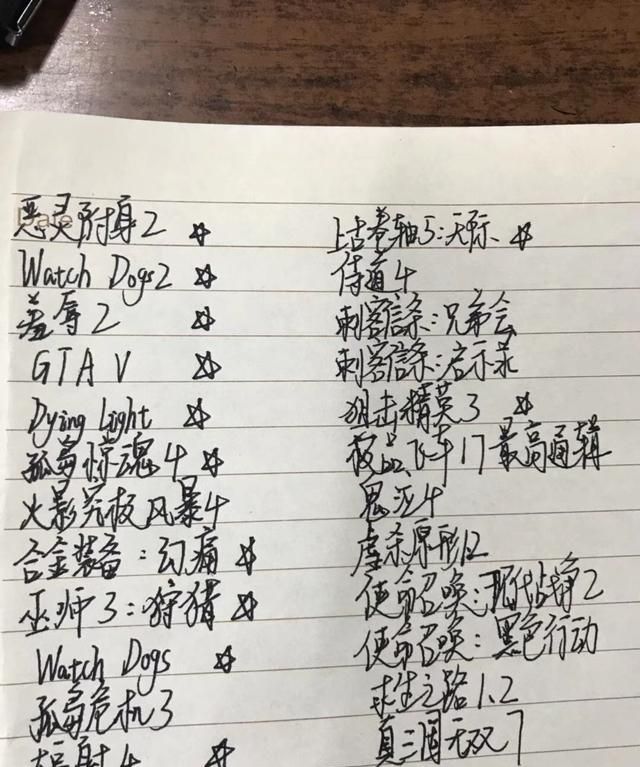 Date
恶灵附身2 ☆
Watch Dogs2 ☆
羞辱2 ☆
GTA V ☆
Dying Light ☆
孤岛惊魂4 ☆
火影究极风暴4
合金装备:幻痛 ☆
巫师3:狩猎 ☆
Watch Dogs ☆
孤岛危机3
辐射4 ☆
上古卷轴5:天际 ☆
侍道4
刺客信条:兄弟会
刺客信条:启示录
狙击精英3 ☆
极品飞车17最高通辑
鬼泣4
虐杀原形12
使命召唤:现代战争2
使命召唤:黑色行动
求生之路1、2
真三国无双7